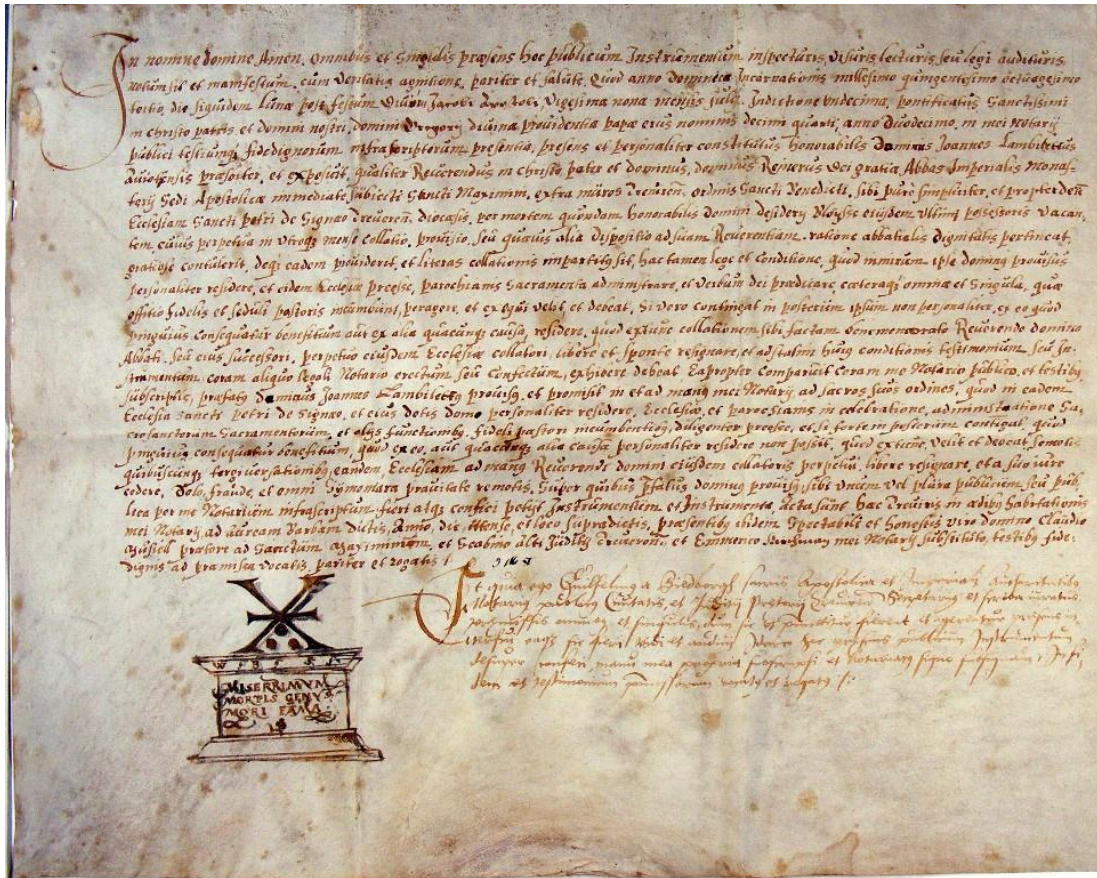 In nomine domine Amen. omnibus et singulis præsens hoc publicum Instrumentum inspecturis, visuris lecturis seu legi audituris
notum sit et manifestum, cum veritatis agnitione, pariter et salute. Quod anno Dominicæ Incarnationis millesimo quingentesimo octuagesimo
tertio, die siquidem Lunæ post festum Jacobi Vigesima nona mensis julij, Indictione vndecima, pontificatus Sanctissimi
in christo patris et domini nostri, domini Gregorij divina providentia papæ eius nominis decimi quarti, anno Duodecimo, in mei Notarij
publici testiumq; fidedignorum infrascriptorum præsentia, præsens et personaliter constitutus honorabilis Joannes Lambilettus
et exposuit, qualiter Reverendus in christo pater et dominus, dominus Reinerus dei gratia Abbas Imperialis Monas-
terij Sedi Apostolicæ immediate subiecti Sancti Maximini, extra muros ordinis Sancti Benedicti, sibi pure simpliciter, et propter deum
Ecclesiam Sancti petri de Signæo diocæsis, per mortem quondam honorabilis domini desiderij eiusdem vltimi possessoris vacan-
tem cuius perpetua in vtroq; mense collatio, provisio, seu quævis alia dispositio ad suam Reverentiam, ratione abbatialis dignitatis pertineat,
gratiose contulerit, deq; eadem providerit, et literas collationis impartitus sit, hac tamen lege et conditione, quod nimirum ipse dominus provisus
personaliter residere, et eidem Ecclesiæ præesse, parochianis Sacramenta administrare, et Verbum dei prædicare, cæteraq; omnia et singula, quæ
offitio fidelis et seduli pastoris incumbunt, peragere, et exequi velit et debeat, Si vero contingat in posterum ipsum non personaliter, ex eo quod
pinguius consequatur benefitium aut ex alia quacunq; causa, residere, quod extunc collationem sibi factam Reverendo domino
Abbati, seu eius successori, perpetuo eiusdem Ecclesiæ collatori, libere et sponte resignare, et huius conditionis testimonium seu In-
strumentum, coram aliquo legali Notario erectum seu confectum, exhibere debeat Eapropter comparuit coram me Notario publico, et testibus
subscriptis, præfatus Joannes Lambilettus provisus, et promisit in et ad manus mei Notarij, ad sacros suos ordines, quod in eadem
Ecclesia sancti petri de Signæo, et eius dotis domo personaliter residere, Ecclesiæ, et in celebratione, administratione Sa-
crosanctorum Sacramentorum, et alijs functionibus, fideli pastori incumbentibus, diligenter præesse, et si forte in posterum contigat, quod
pinguius consequatur benefitium, quod ex eo, aut quacunq; alia causa, personaliter residere non possit, quod extunc, velit et debeat semotis
quibuscunq; tergiversationibus, eandem Ecclesiam ad manus Reverendi domini eiusdem collatoris perpetui, libere resignare, et a suo iure
cedere, Dolo, fraude, et omni Symoniaca pravitate remotis, Super quibus dominus provisus, sibi vnum vel plura publicum seu pub-
lica per me Notarium infrascriptum fieri atq; confici petijt Instrumentum et Instrumenta, Acta sunt hæc Treviris in ædibus habitationis
mei Notarij, ad auream Barbam dictis, Anno, die, Mense, et loco supradictis, præsentibus ibidem spectabili et honestis viro domino, Claudio
Musiell prætore ad Sanctum Maximinum, et Scabino alti Juditij et Emmerico mei Notarij substituto, testibus fide-
dignis ad præmissa vocatis, pariter et rogatis
Et quia ego a sacris Apostolica et Imperiali Auctoritatibus
Notarius publicus Civitatis, et Secretarius et scriba iuratus
præmissis omnibus et singulis, dum sic ut præmittitur fierent et agerentur præsens
sic fieri vidi et audivi, hoc præsens publicum Instrumentum
manu mea propria subscripsi et Notariatus signo
et testimonium præmissorum rogatus et
MISERRIMVM
MORTIS GENVS
MORI FAMA